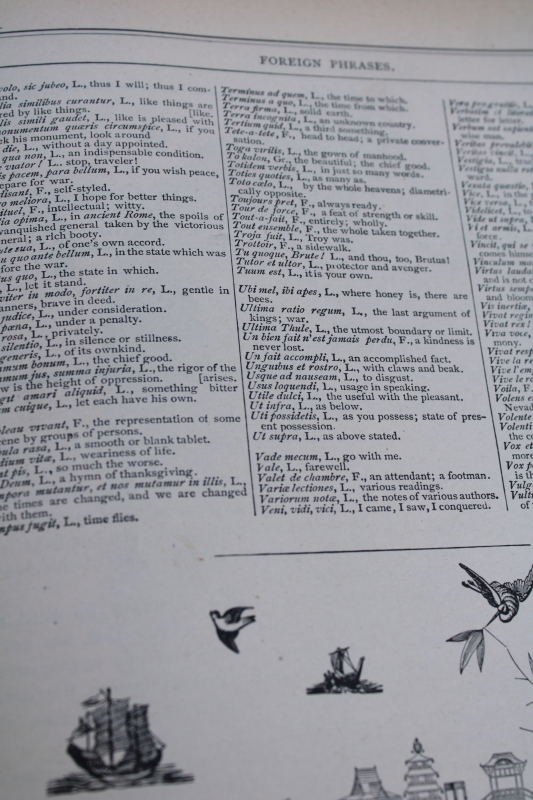 FOREIGN PHRASES.
volo, sic jubeo, L., thus I will; thus I com-
similibus curantur, L., like things are
red by like things. [like.
similis simili gaudet, L., like is pleased with
monumentum quæris circumspice, L., if you
ek his monument, look around
die, L., without a day appointed.
qua non, L., an indispensable condition.
viator! L. stop, traveler!
pacem, para bellum, L., if you wish peace,
epare for war.
disant, F., self-styled.
meliora, L., I hope for better things.
ituel, F., intellectual; witty.
lia opima, L., in ancient Rome, the spoils of
vanquished general taken by the victorious
neral; a rich booty.
te sua, L., of one's own accord.
u quo ante bellum, L., in the state which was
fore the war.
us quo, L., the state in which.
, L., let it stand.
viter in modo, fortiter in re, L., gentle in
anners, brave in deed.
judice, L., under consideration.
pæna, L., under a penalty.
rosa, L., privately.
silentio, L., in silence or stillness.
generis, L., of its ownkind.
mum bonum, L., the chief good.
mum jus, summa injuria, L., the rigor of the
w is the height of oppression. [arises.
git amari aliquid, L., something bitter
m cuique, L., let each have his own.
leau vivant, F., the representation of some
ene by groups of persons.
bula rasa, L., a smooth or blank tablet.
dium vitæ, L., weariness of life.
t pis, L., so much the worse.
Deum, L., a hymn of thanksgiving.
mpora mutantur, et nos mutamur in illis, L.,
he times are changed, and we are changed
with them.
mpus fugit, L., time flies.
Terminus ad quem, L., the time to which.
Terminus a quo, L., the time from which.
Terra firma, L., solid earth.
Terra incognita, L., an unknown country.
Tertium quid, L., a third something.
Tete-a-tete, F., head to head; a private conver-
sation.
Toga virilis, L., the gown of manhood.
To kalon, Gr., the beautiful; the chief good.
Totidem verbis, L., in just so many words.
Toties quoties, L., as many as.
Toto cælo, L., by the whole heavens; diametri-
cally opposite.
Toujours pret, F., always ready.
Tour de force, F., a feat of strength or skill.
Tout-a-fait, F., entirely; wholly.
Tout ensemble, F., the whole taken together.
Troja fuit, L., Troy was.
Trottoir, F., a sidewalk.
Tu quoque, Brute! L., and thou, too, Brutus!
Tutor et ultor, L., protector and avenger.
Tuum est, L., it is your own.
Ubi mel, ibi apes, L., where honey is, there are
bees.
Ultima ratio regum, L., the last argument of
kings; war.
Ultima Thule, L., the utmost boundary or limit.
Un bien fait n'est jamais perdu, F., a kindness is
never lost.
Un fait accompli, L., an accomplished fact.
Unguibus et rostro, L., with claws and beak.
Usque ad nauseam, L., to disgust.
Usus loquendi, L., usage in speaking.
Utile dulci, L., the useful with the pleasant.
Ut infra, L., as below.
Uti possidetis, L., as you possess; state of pres-
ent possession.
Ut supra, L., as above stated.
Vade mecum, L., go with me.
Vale, L., farewell.
Valet de chambre, F., an attendant; a footman.
Variæ lectiones, L., various readings.
Variorum notæ, L., the notes of various authors.
Veni, vidi, vici, L., I came, I saw, I conquered.
letter for letter.
Verbum sat
wise man.
Vestigia, L.,
Vestigia nulla
ward.
Vice versa, L.,
Videlicet, L., to
Vide ut supra,
Vi et armis, L.,
force.
Vincit, qui se
comes himse
Vinculum ma
Virtus lauda
and is not c
Virtus semp
and bloom
Vis inertiæ,
Vivat regin
Vivat rex!
Viva voce,
mony.
Vivat resp
Vive la re
Vive l'emp
Vive le ro
Voila, F.,
Volens e
Nevad
Volente
Volenti
the co
Vox et
more
Vox p
is th
Vulg
Vult
of